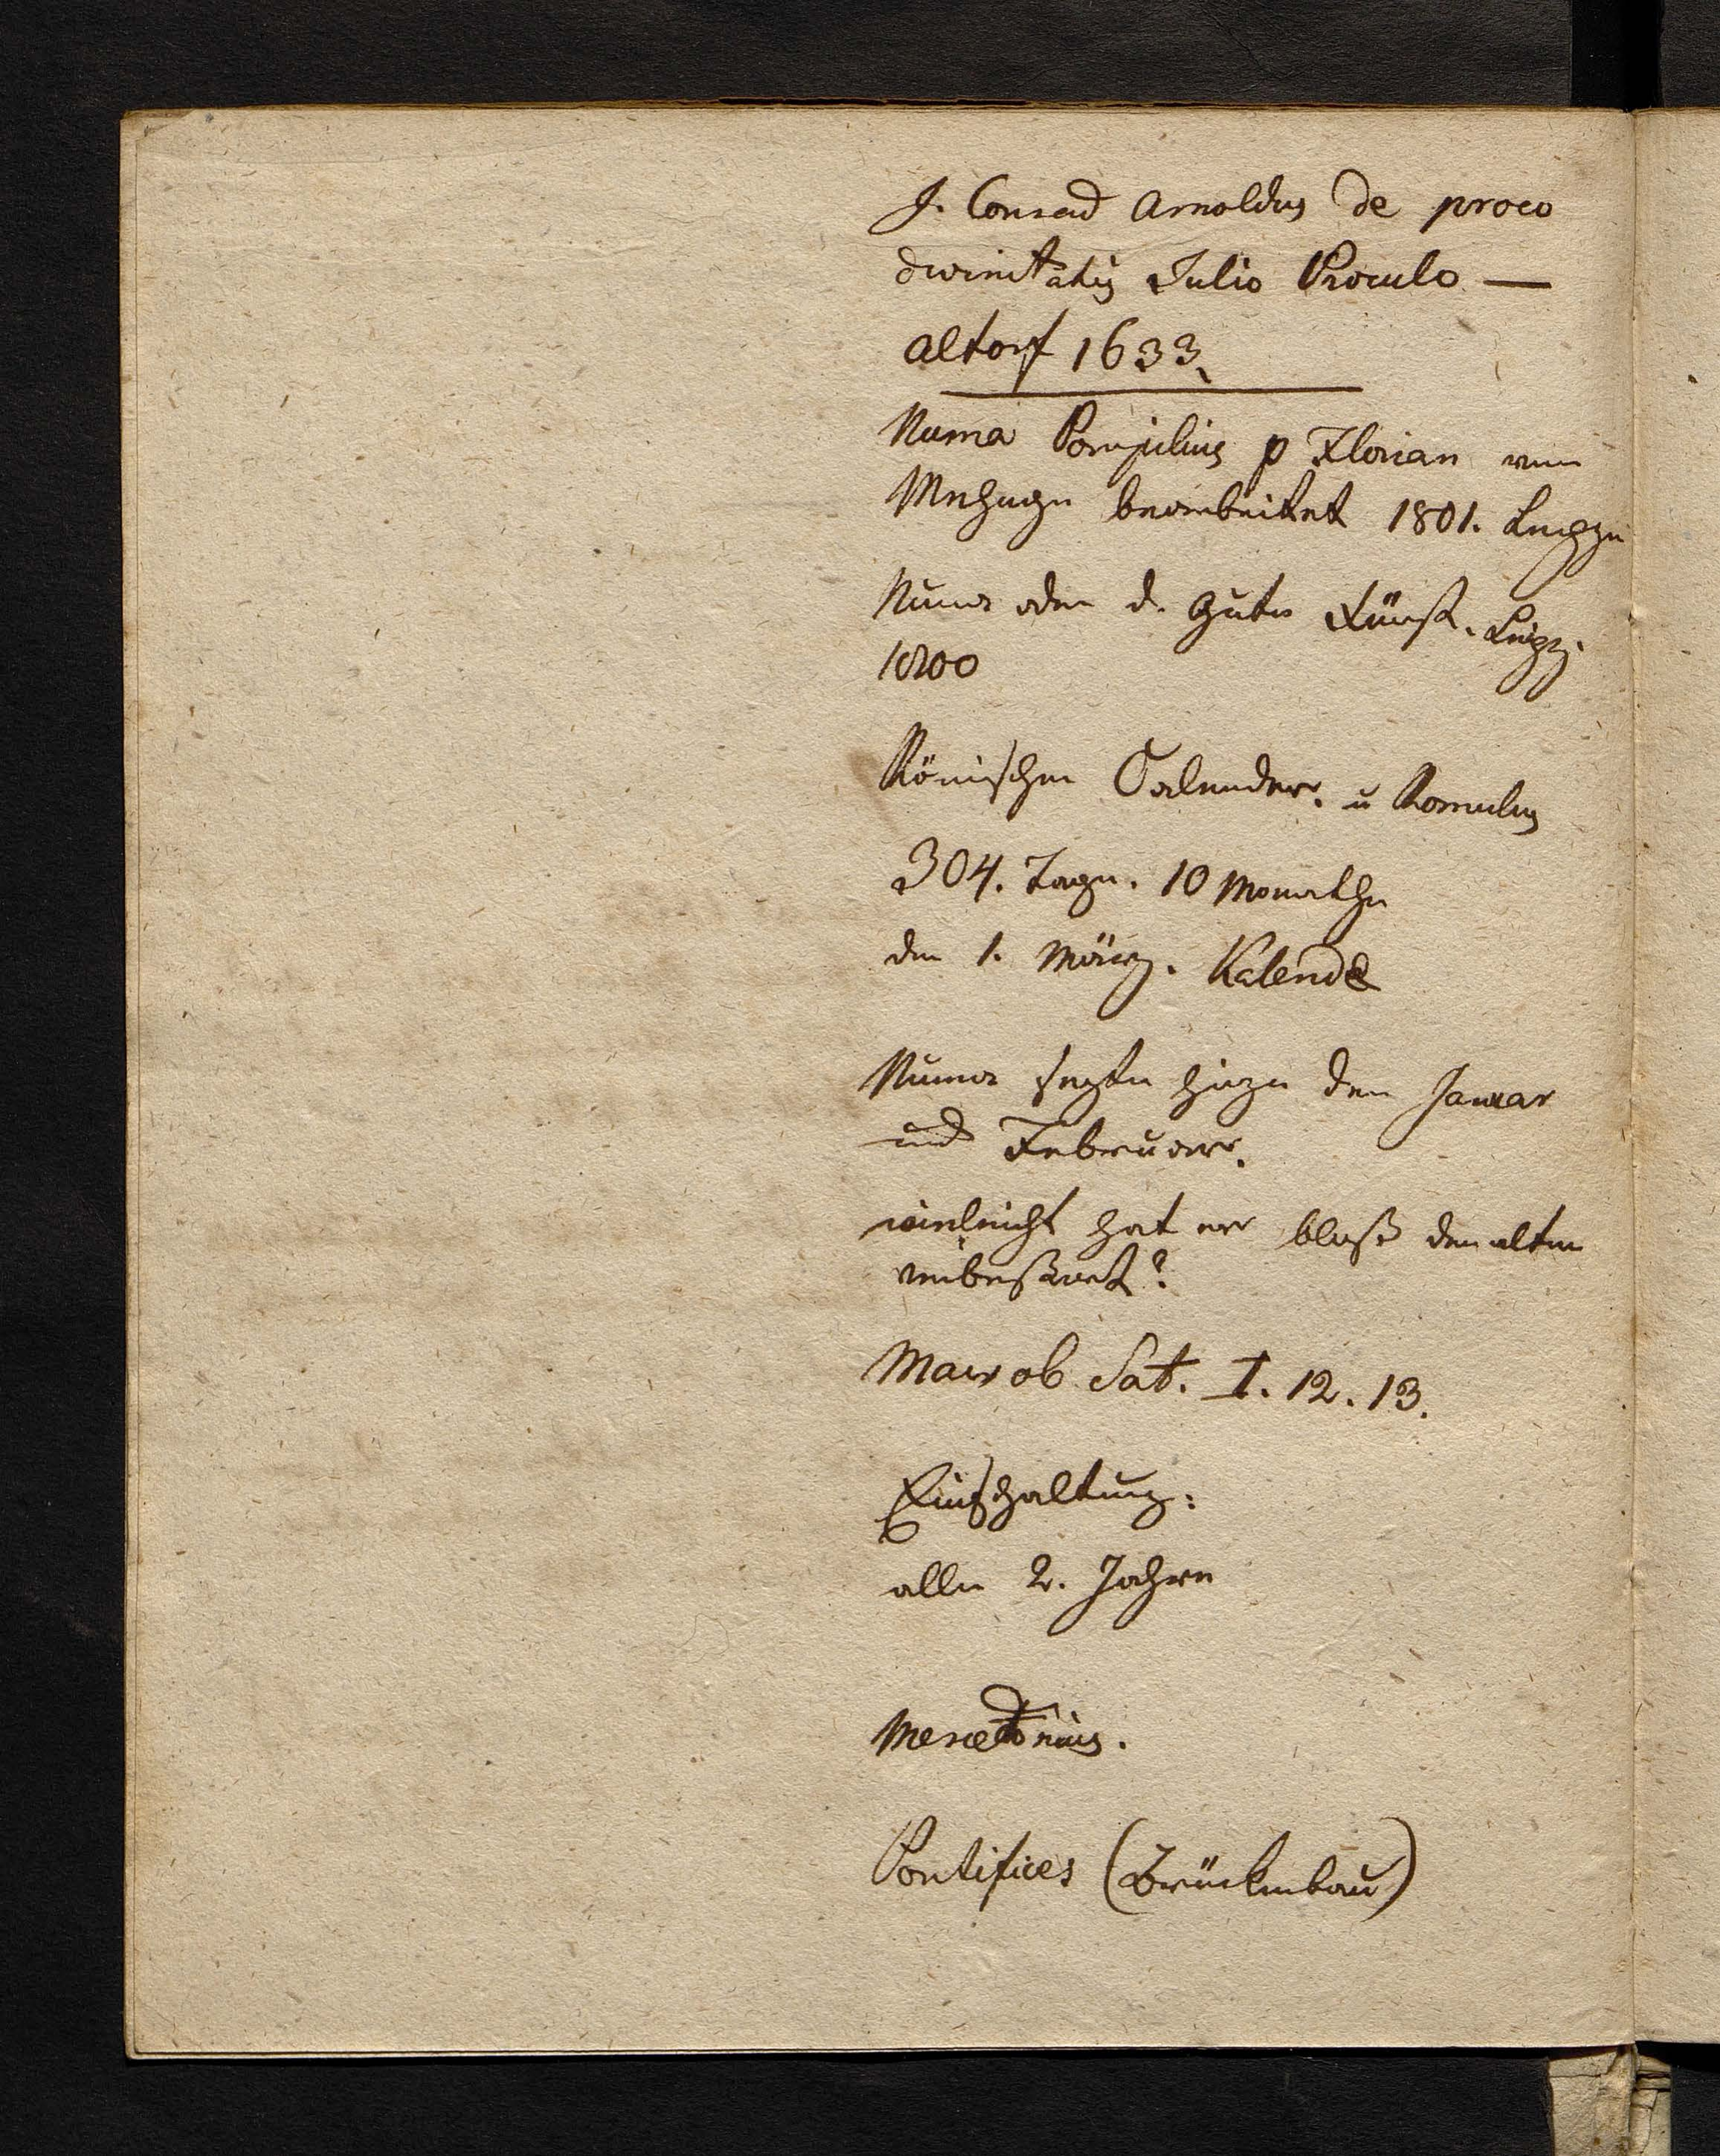 J. Conrad Arnoldus de proco
divinitatis Julio Proculo —
Altorf 1633.
Numa Pompilius p Florian von
bearbeitet 1801. Leipzig
Numa oder d. gute Fürst. Leipz.
1800
Römischer Calender. u Romulus
304. Tage. 10 Monathe
den 1. März. Kalendæ
Numa sezte hiezu den Januar
und Februar.
vieleicht hat er bloß den alten
verbeßert?
Macrob Sat. I. 12. 13.
Einschaltung:
alle 2. Jahre
Mercedonius.
Pontifices (Brückenbau)